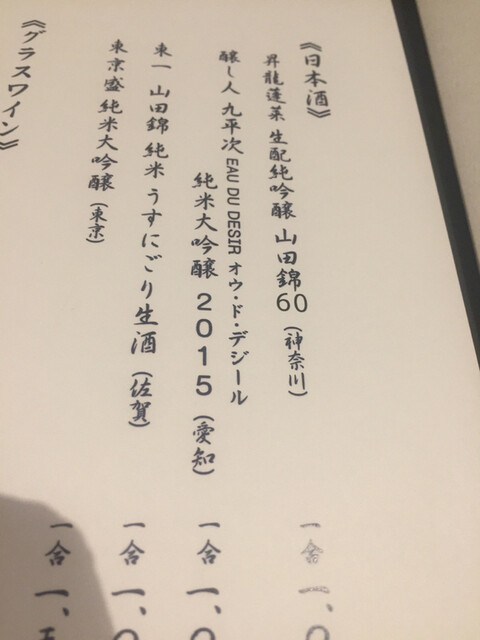 《日本酒》
昇龍蓬莱 生酛純吟醸 山田錦60 (神奈川) 一合 一、〇
醸し人 九平次 EAU DU DESIR オウ・ド・デジール
純米大吟醸 2015 (愛知) 一合 一、〇
東一 山田錦 純米 うすにごり生酒 (佐賀) 一合 一、〇
東京盛 純米大吟醸 (東京) 一合 一、五
《グラスワイン》